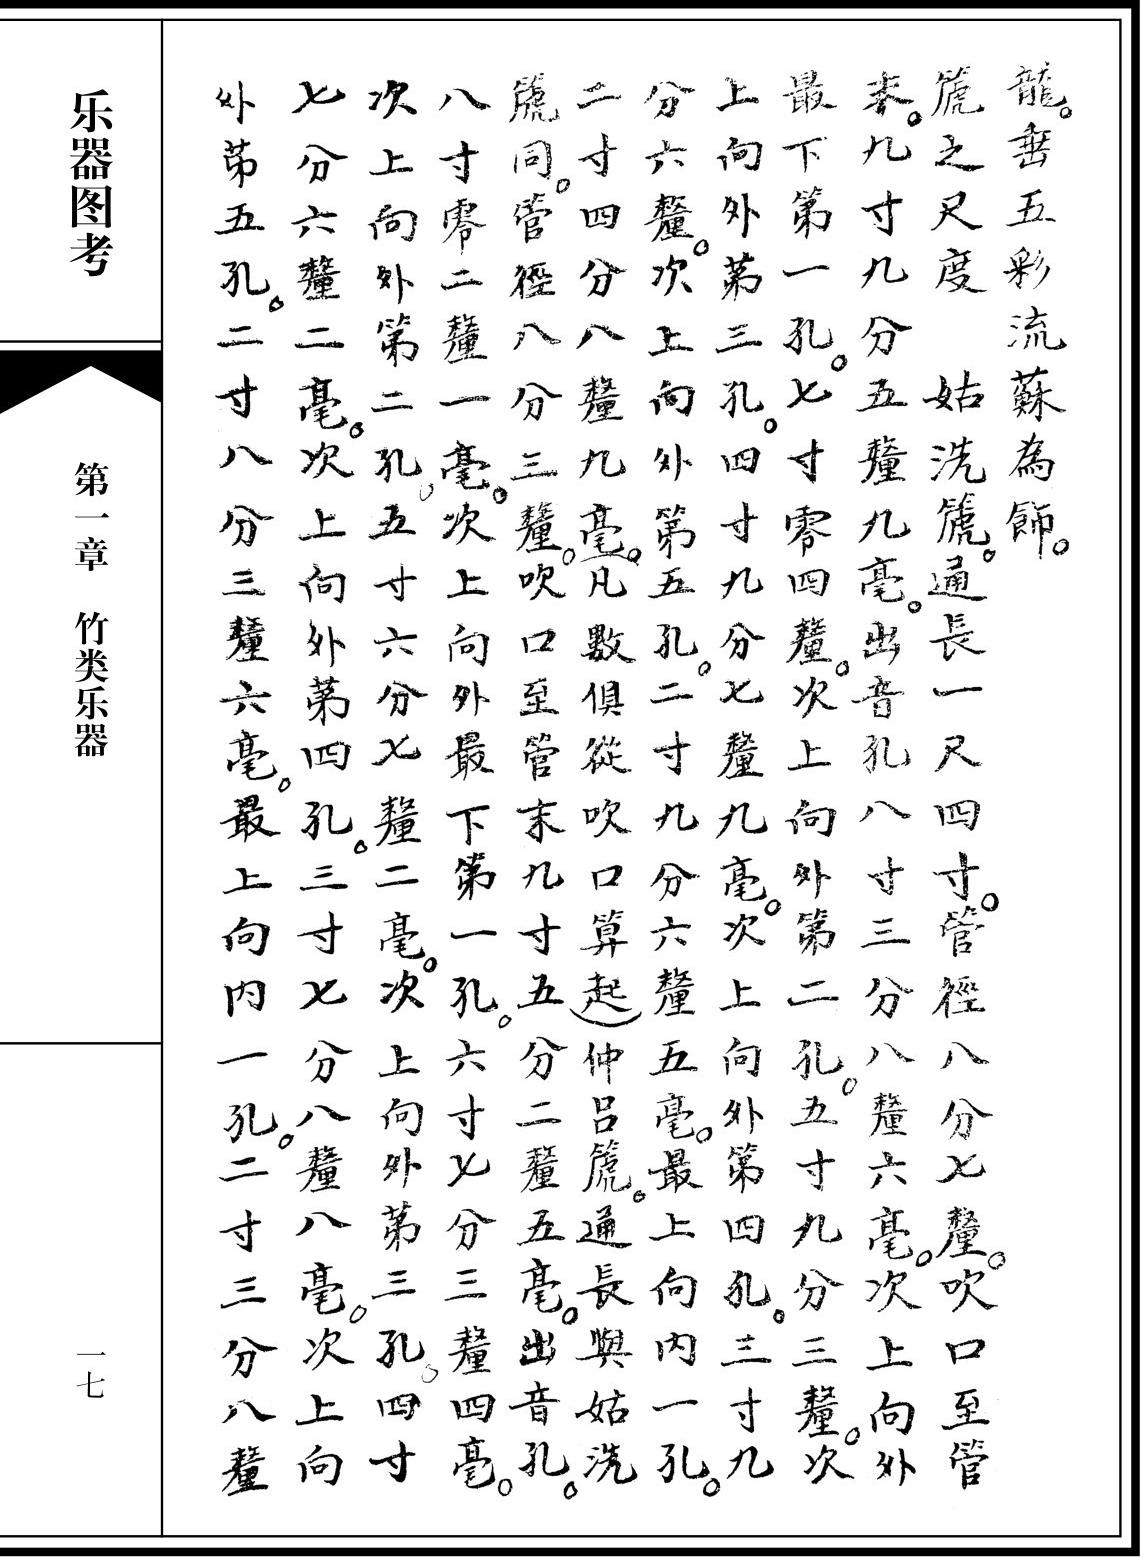 龍。垂五彩流蘇為飾。
篪之尺度　姑洗篪。通長一尺四寸。管徑八分七釐。吹口至管
末。九寸九分五釐九毫。出音孔八寸三分八釐六毫。次上向外
最下第一孔。七寸零四釐。次上向外第二孔。五寸九分三釐。次
上向外第三孔。四寸九分七釐九毫。次上向外第四孔。三寸九
分六釐。次上向外第五孔。二寸九分六釐五毫。最上向内一孔。
二寸四分八釐九毫。凡數俱從吹口算起）仲呂篪。通長與姑洗
篪同。管徑八分三釐。吹口至管末九寸五分二釐五毫。出音孔。
八寸零二釐一毫。次上向外最下第一孔。六寸七分三釐四毫。
次上向外第二孔。五寸六分七釐二毫。次上向外第三孔。四寸
七分六釐二毫。次上向外第四孔。三寸七分八釐八毫。次上向
外第五孔。二寸八分三釐六毫。最上向内一孔。二寸三分八釐
乐器图考
第一章　竹类乐器
一七